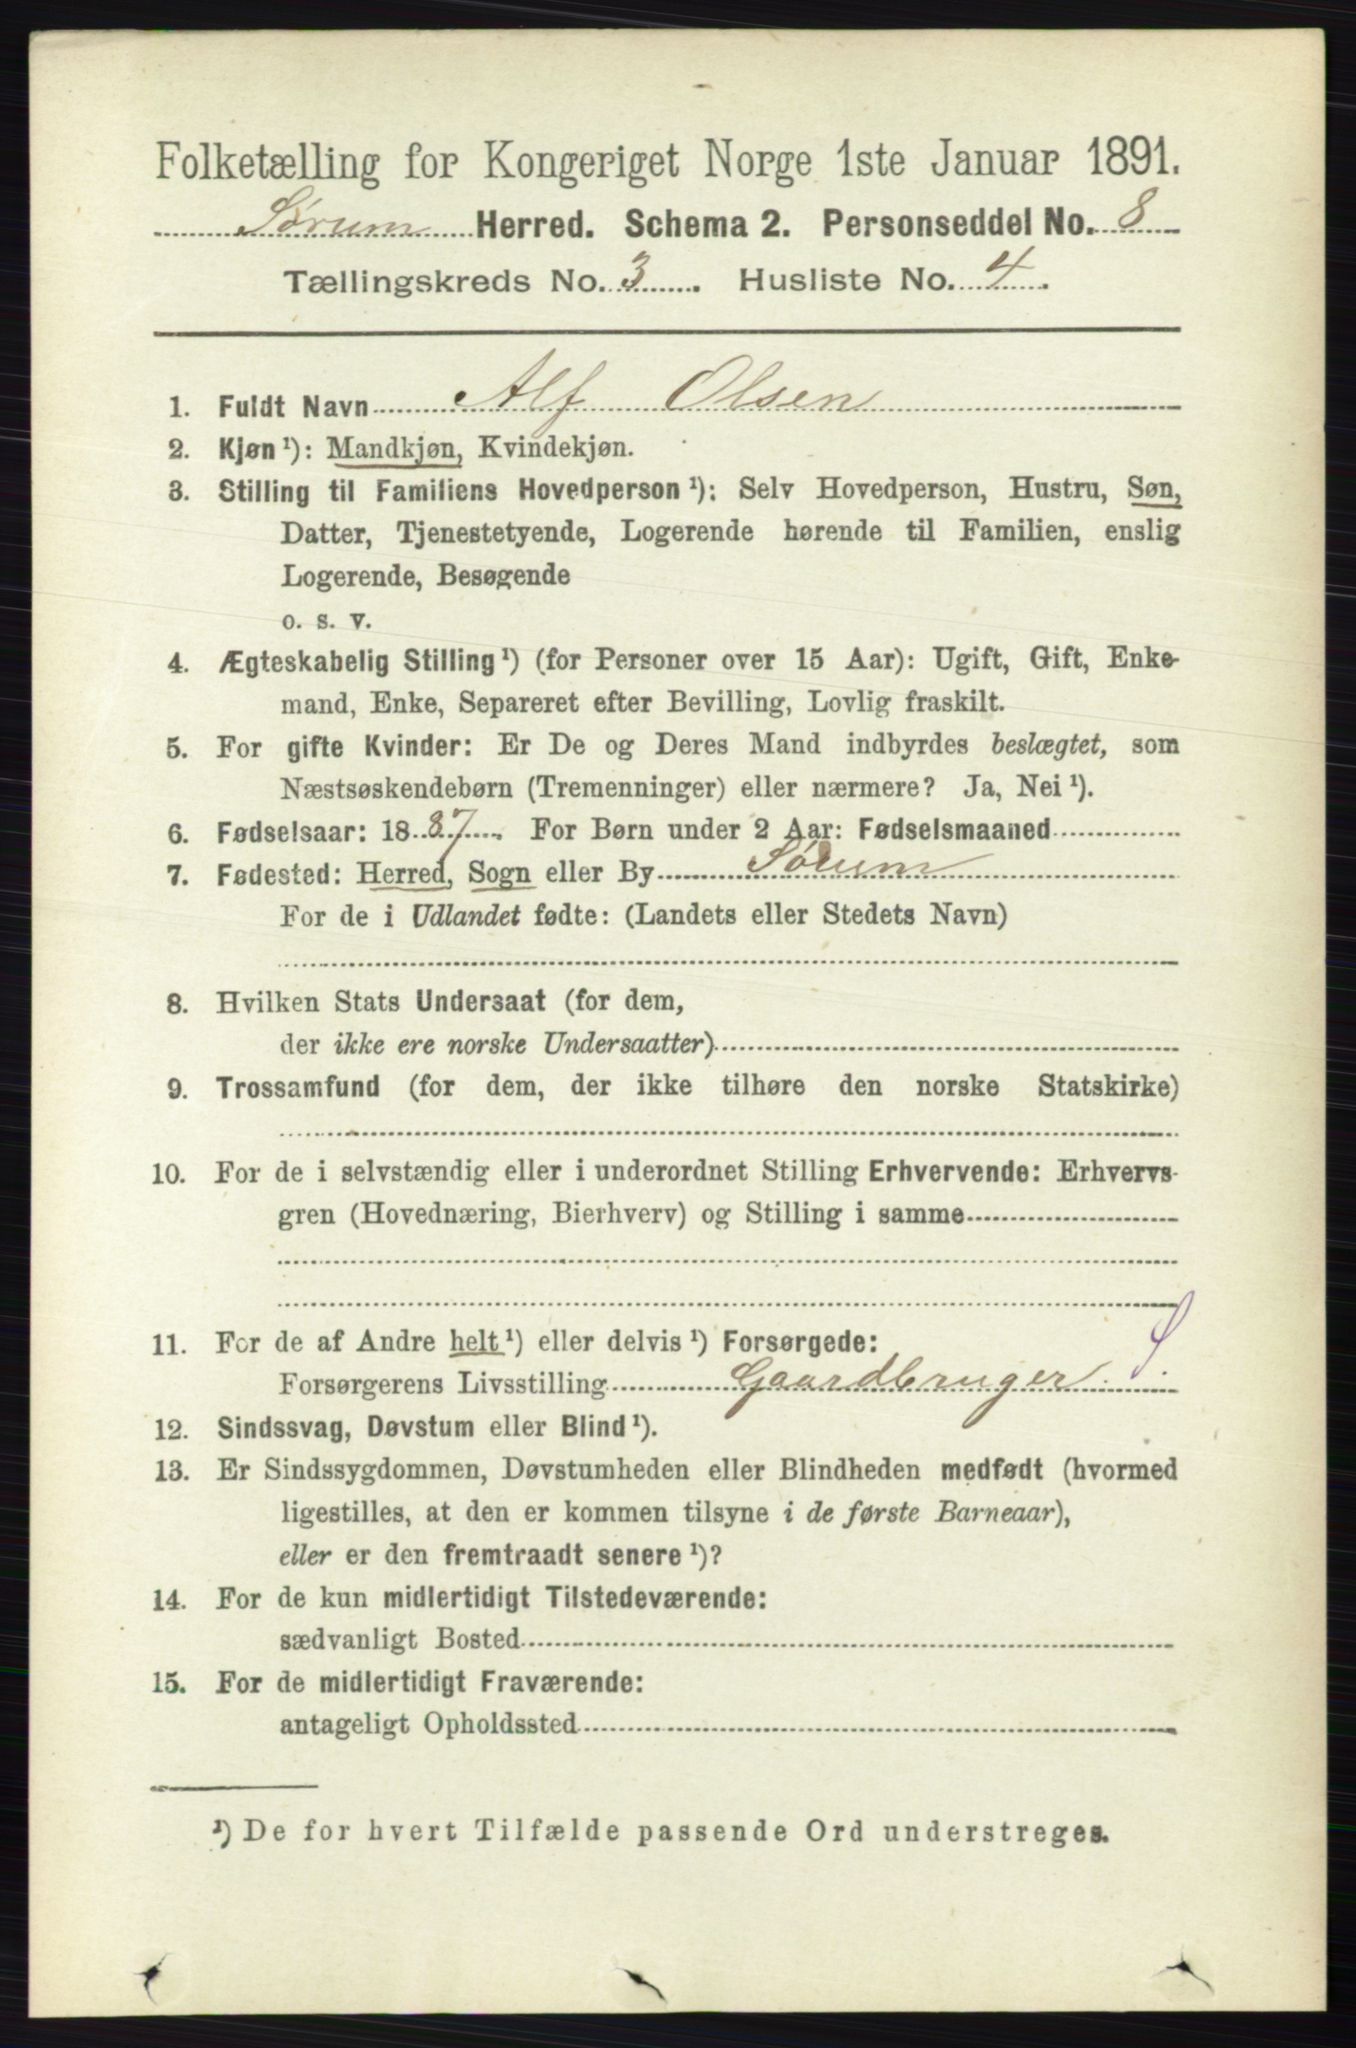 Folketælling for Kongeriget Norge 1ste Januar 1891.
Sørum Herred. Schema 2. Personseddel No. 8
Tællingskreds No. 3. Husliste No. 4.
1. Fuldt Navn Alf Olsen
2. Kjøn ¹): Mandkjøn, Kvindekjøn.
3. Stilling til Familiens Hovedperson ¹): Selv Hovedperson, Hustru, Søn,
Datter, Tjenestetyende, Logerende hørende til Familien, enslig
Logerende, Besøgende
o. s. v.
4. Ægteskabelig Stilling ¹) (for Personer over 15 Aar): Ugift, Gift, Enke-
mand, Enke, Separeret efter Bevilling, Lovlig fraskilt.
5. For gifte Kvinder: Er De og Deres Mand indbyrdes beslægtet, som
Næstsøskendebørn (Tremenninger) eller nærmere? Ja, Nei ¹).
6. Fødselsaar: 1887. For Børn under 2 Aar: Fødselsmaaned
7. Fødested: Herred, Sogn eller By Sørum
For de i Udlandet fødte: (Landets eller Stedets Navn)
8. Hvilken Stats Undersaat (for dem,
der ikke ere norske Undersaatter)
9. Trossamfund (for dem, der ikke tilhøre den norske Statskirke)
10. For de i selvstændig eller i underordnet Stilling Erhvervende: Erhvervs-
gren (Hovednæring, Bierhverv) og Stilling i samme
11. For de af Andre helt ¹) eller delvis ¹) Forsørgede:
Forsørgerens Livsstilling Gaardbruger. S.
12. Sindssvag, Døvstum eller Blind ¹).
13. Er Sindssygdommen, Døvstumheden eller Blindheden medfødt (hvormed
ligestilles, at den er kommen tilsyne i de første Barneaar),
eller er den fremtraadt senere ¹)?
14. For de kun midlertidigt Tilstedeværende:
sædvanligt Bosted
15. For de midlertidigt Fraværende:
antageligt Opholdssted
¹) De for hvert Tilfælde passende Ord understreges.